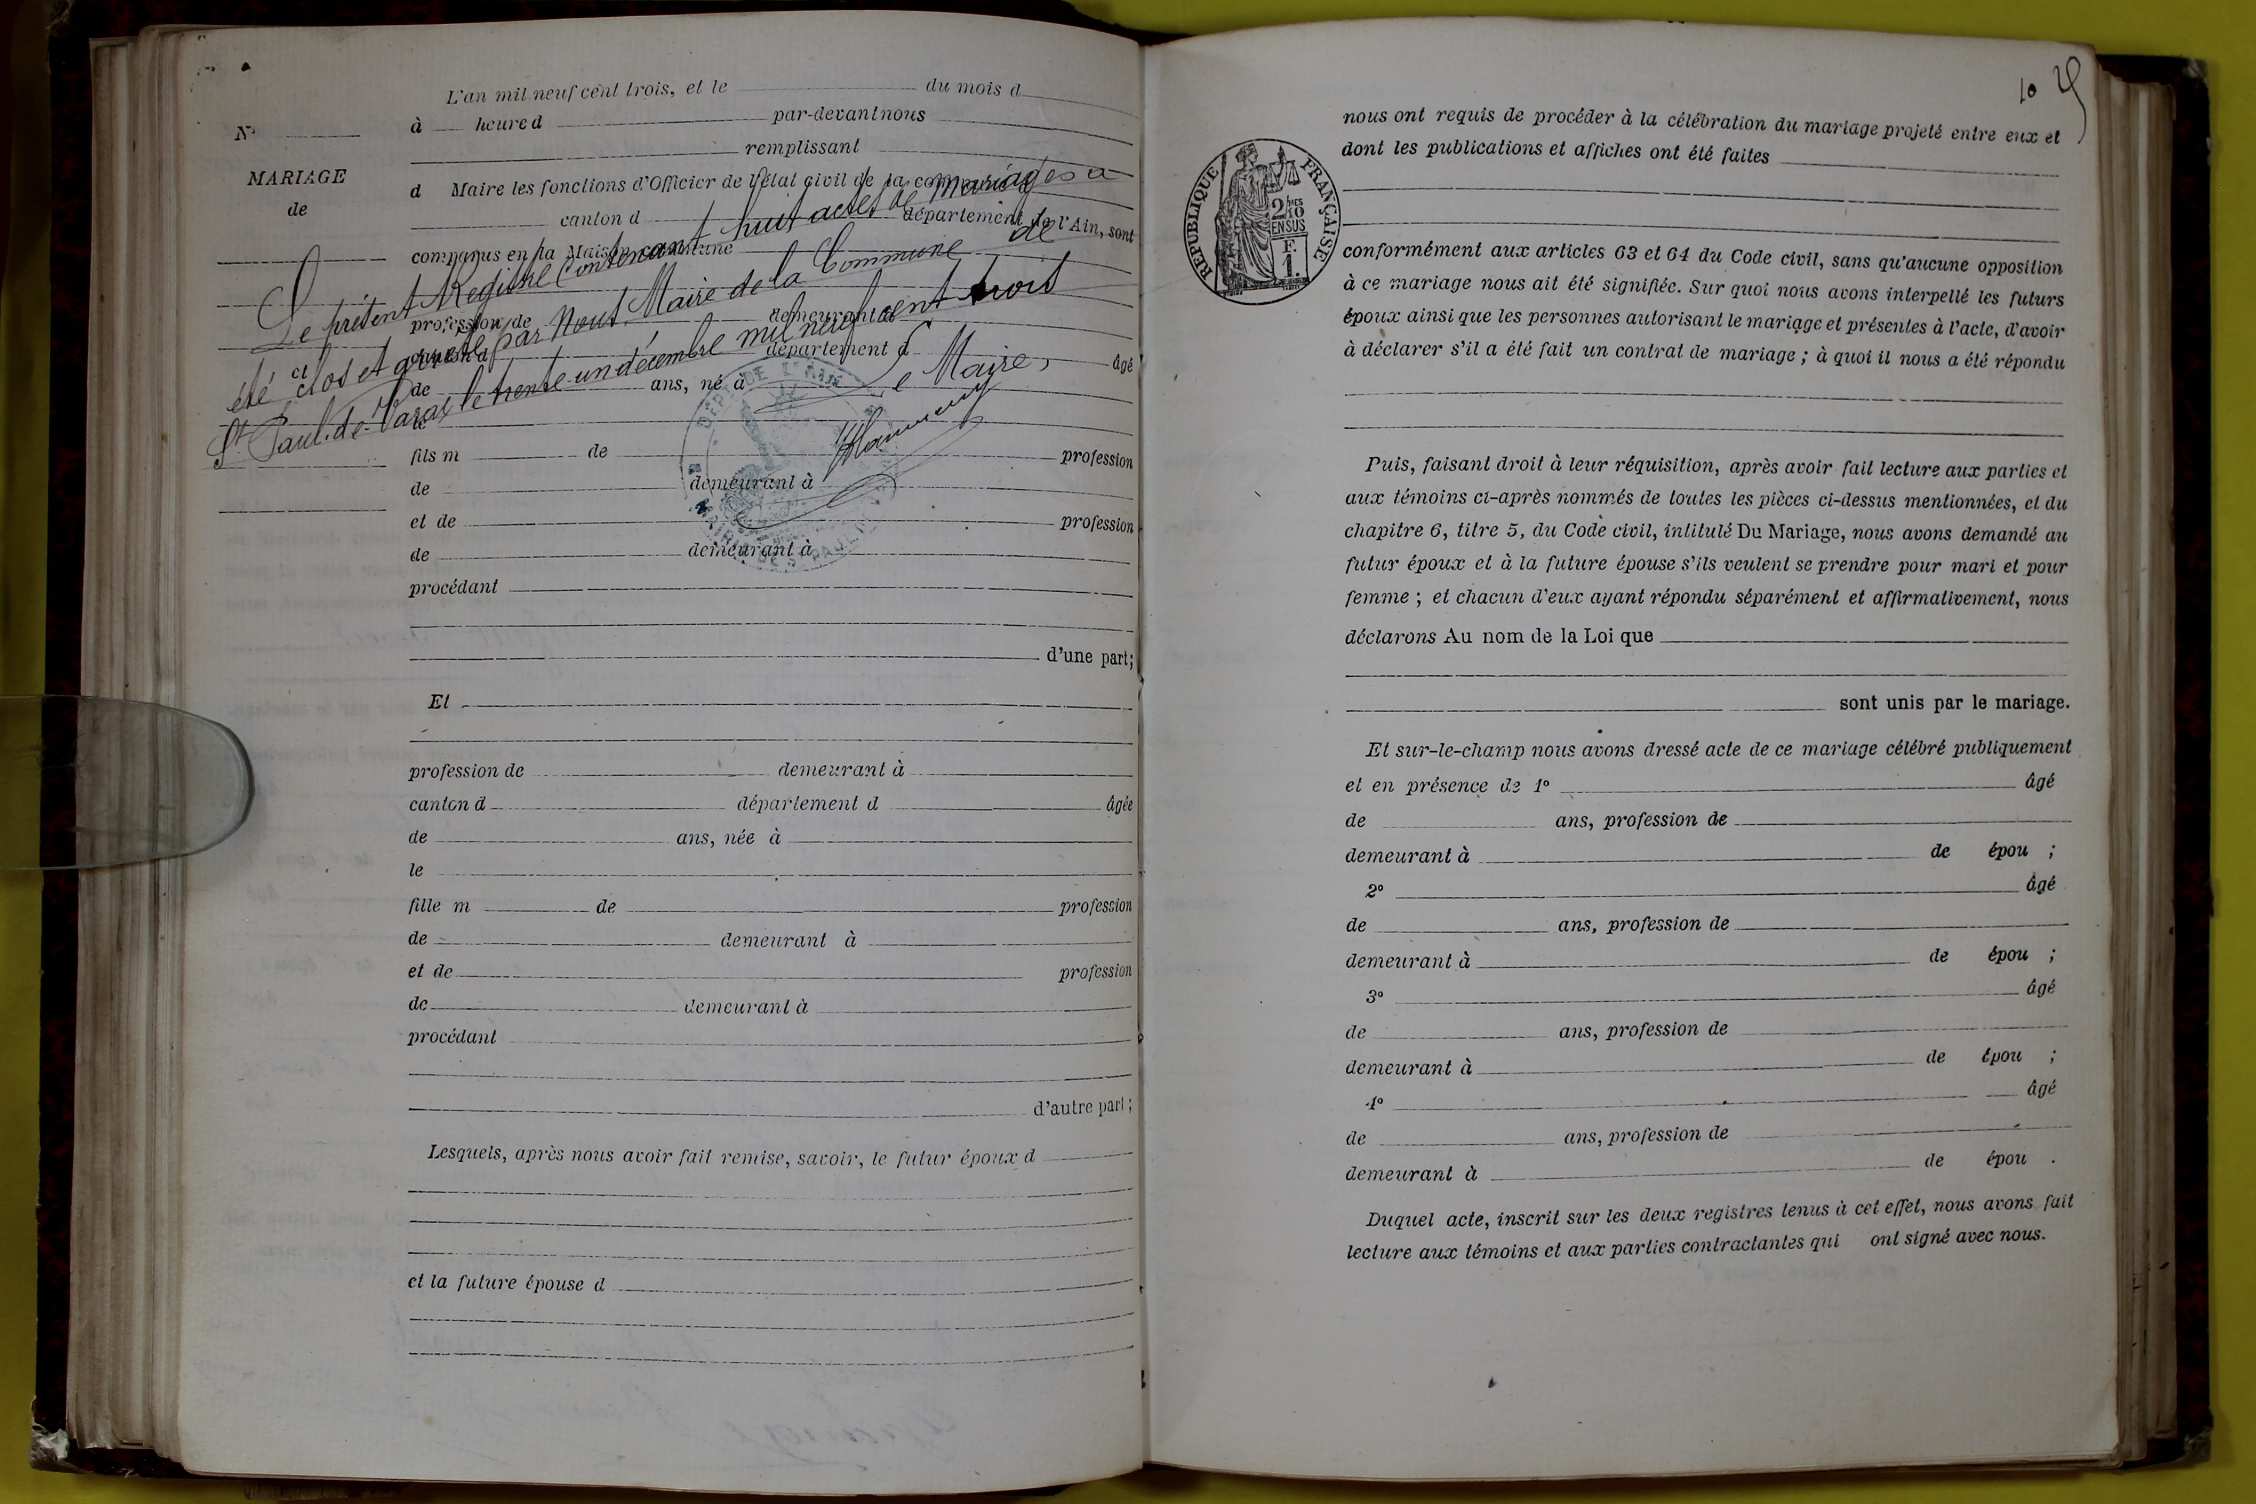 L'an mil neuf cent trois, et le du mois d
N° à heure d par-devant nous
remplissant
MARIAGE
de
d Maire les fonctions d'Officier de l'état civil de la commune d
canton d département de l'Ain, sont
comparus en la Maison commune
profession de demeurant à
canton d département d âgé
de ans, né à
le
fils m de profession
de demeurant à
et de profession
de demeurant à
procédant
d'une part;
Le présent Registre Contenant huit actes de Mariages a
été clos et arrêté par Nous Maire de la Commune de
St Paul-de-Varax le trente-un décembre mil neuf cent trois
Le Maire,
DÉPT DE L'AIN
MAIRIE DE ST PAUL
Et
profession de demeurant à
canton d département d âgée
de ans, née à
le
fille m de profession
de demeurant à
et de profession
de demeurant à
procédant
d'autre part;
Lesquels, après nous avoir fait remise, savoir, le futur époux d
et la future épouse d
10
RÉPUBLIQUE FRANÇAISE
2/10
EN SUS
F.
1.
nous ont requis de procéder à la célébration du mariage projeté entre eux et
dont les publications et affiches ont été faites
conformément aux articles 63 et 64 du Code civil, sans qu'aucune opposition
à ce mariage nous ait été signifiée. Sur quoi nous avons interpellé les futurs
époux ainsi que les personnes autorisant le mariage et présentes à l'acte, d'avoir
à déclarer s'il a été fait un contrat de mariage ; à quoi il nous a été répondu
Puis, faisant droit à leur réquisition, après avoir fait lecture aux parties et
aux témoins ci-après nommés de toutes les pièces ci-dessus mentionnées, et du
chapitre 6, titre 5, du Code civil, intitulé Du Mariage, nous avons demandé au
futur époux et à la future épouse s'ils veulent se prendre pour mari et pour
femme ; et chacun d'eux ayant répondu séparément et affirmativement, nous
déclarons Au nom de la Loi que
sont unis par le mariage.
Et sur-le-champ nous avons dressé acte de ce mariage célébré publiquement
et en présence de 1° âgé
de ans, profession de
demeurant à de épou ;
2° âgé
de ans, profession de
demeurant à de épou ;
3° âgé
de ans, profession de
demeurant à de épou ;
4° âgé
de ans, profession de
demeurant à de épou .
Duquel acte, inscrit sur les deux registres tenus à cet effet, nous avons fait
lecture aux témoins et aux parties contractantes qui ont signé avec nous.